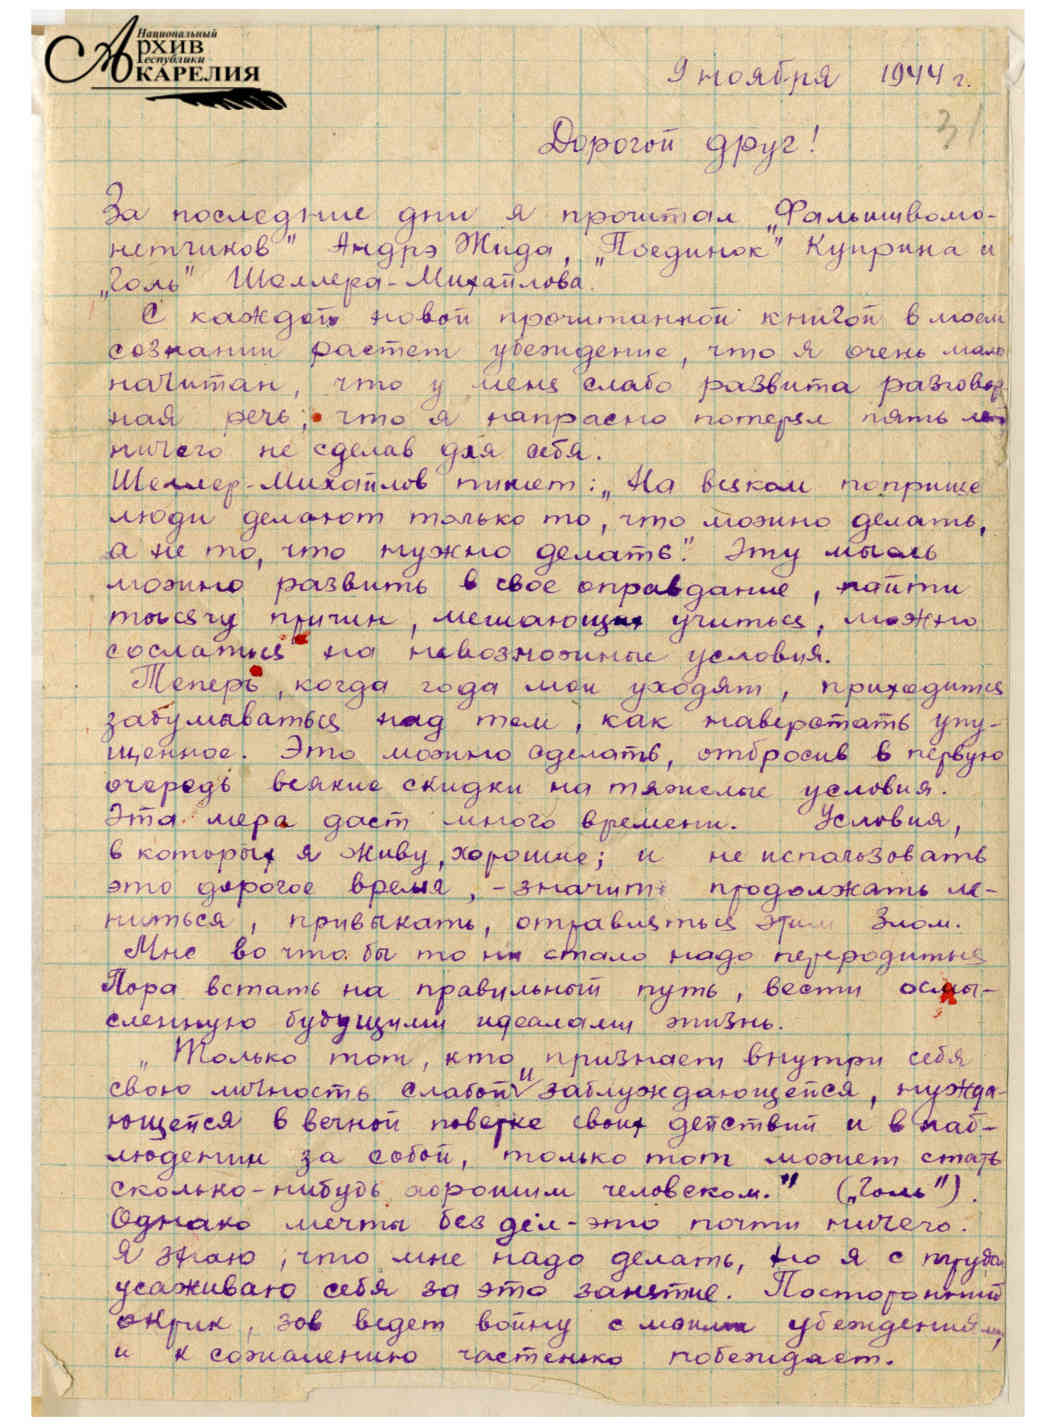 Национальный
Архив
Республики
Карелия
9 ноября 1944 г.
31
Дорогой друг!
За последние дни я прочитал „Фальшивомо-
нетчиков" Андрэ Жида, „Поединок" Куприна и
„Голь" Шеллера-Михайлова.
С каждой новой прочитанной книгой в моем
сознании растет убеждение, что я очень мало
начитан, что у меня слабо развита разговор
ная речь; что я напрасно потерял пять лет
ничего не сделав для себя.
Шеллер-Михайлов пишет: „На всяком поприще
люди делают только то, что можно делать,
а не то, что нужно делать." Эту мысль
можно развить в свое оправдание, найти
тысячу причин, мешающих учиться, можно
сослаться на невозможные условия.
Теперь, когда года мои уходят, приходится
задумываться над тем, как наверстать упу-
щенное. Это можно сделать, отбросив в первую
очередь всякие скидки на тяжелые условия.
Эта мера даст много времени. Условия,
в которых я живу, хорошие; и не использовать
это дорогое время, - значит продолжать ле-
ниться, привыкать, отравляться этим злом.
Мне во что бы то ни стало надо переродиться
Пора встать на правильный путь, вести осмы-
сленную будущими идеалами жизнь.
„Только тот, кто признает внутри себя
свою личность слабой и заблуждающейся, нужда-
ющейся в вечной поверке своих действий и в наб-
людении за собой, только тот может стать
сколько-нибудь хорошим человеком." („Голь").
Однако мечты без дел - это почти ничего.
Я знаю, что мне надо делать, но я с трудом
усаживаю себя за это занятие. Посторонний
окрик, зов ведет войну с моими убеждениями,
и к сожалению частенько побеждает.